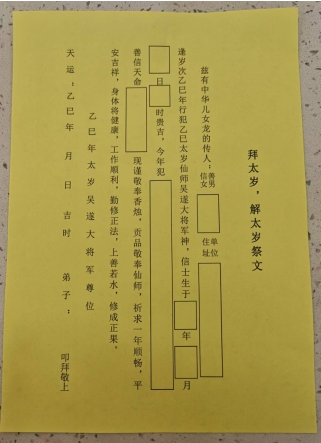 拜太岁，解太岁祭文
兹有中华儿女龙的传人：善男信女 住址单位
逢岁次乙巳年行犯乙巳太岁仙师吴遂大将军神，信士生于 年 月
日 时贵吉，今年犯
善信天命 现谨敬奉香烛，贡品敬奉仙师，祈求一年顺畅，平
安吉祥，身体将健康，工作顺利，勤修正法，上善若水，修成正果，
乙巳年太岁吴遂大将军尊位
天运：乙巳年 月 日吉时 弟子： 叩拜敬上